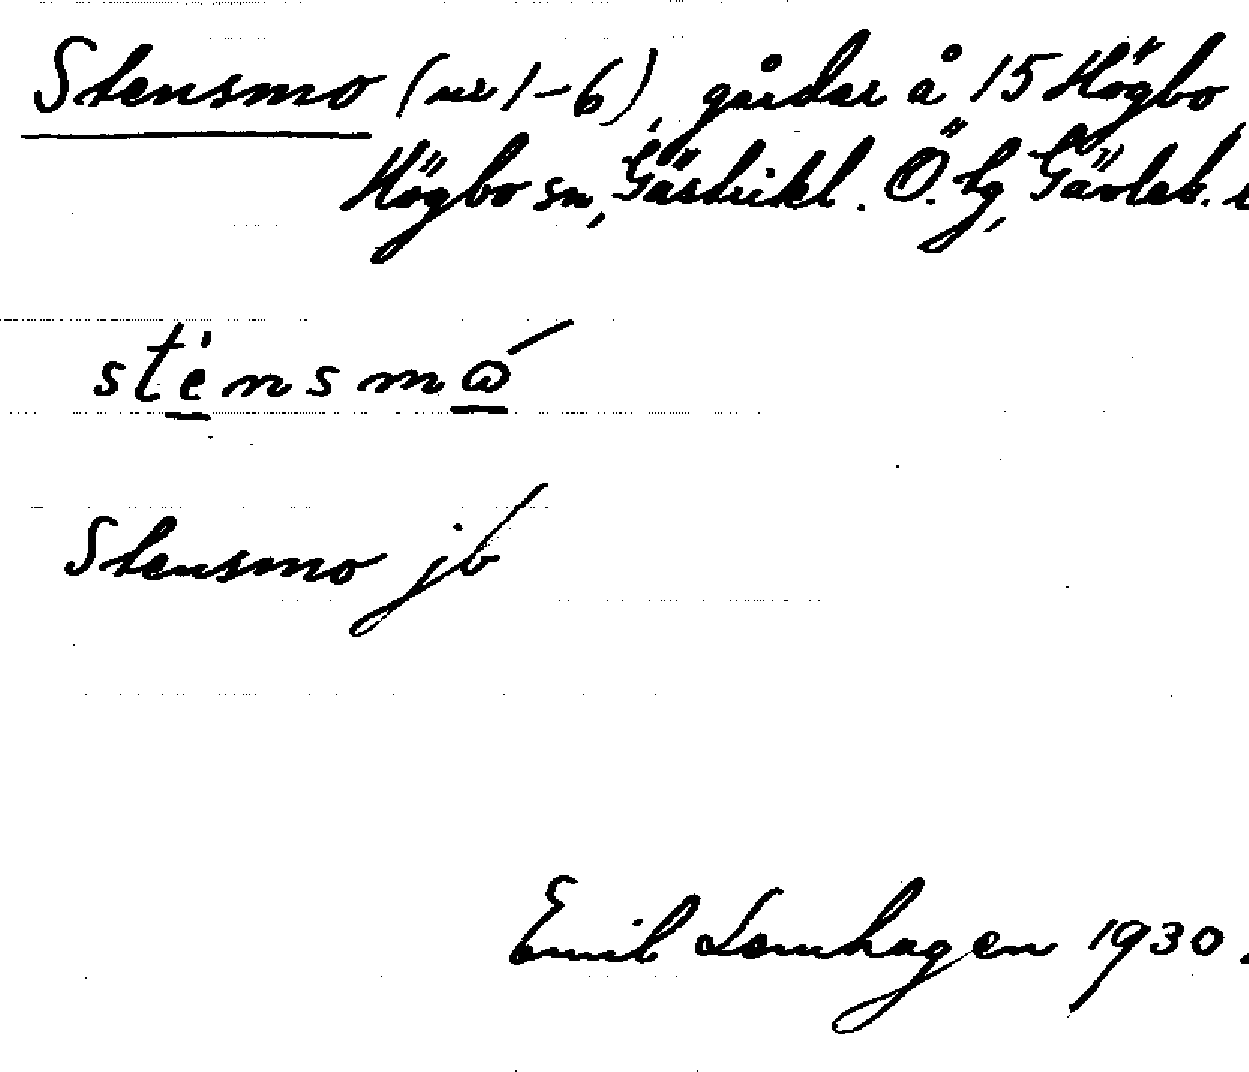 Stensmo (nr 1-6), gårdar å 15 Högbo
Högbo sn, Gästrikl. Ö. tg, Gävleb.
sténsmω
Stensmo jb
Emil Lomhagen 1930.